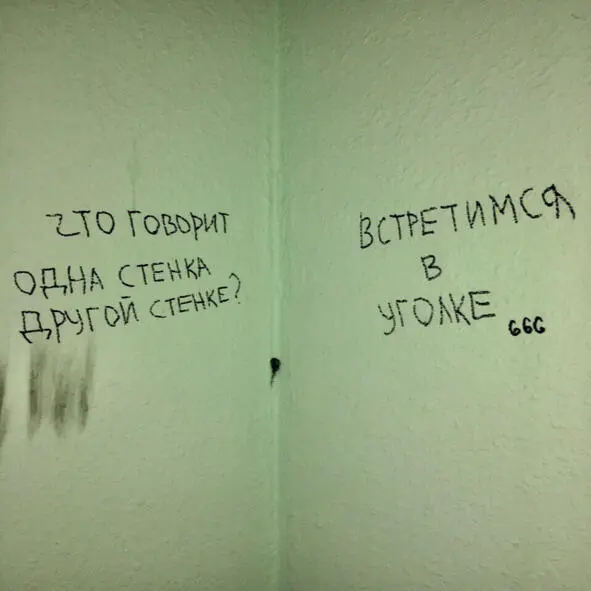 ЧТО ГОВОРИТ
ОДНА СТЕНКА
ДРУГОЙ СТЕНКЕ?
ВСТРЕТИМСЯ
В
УГОЛКЕ
666